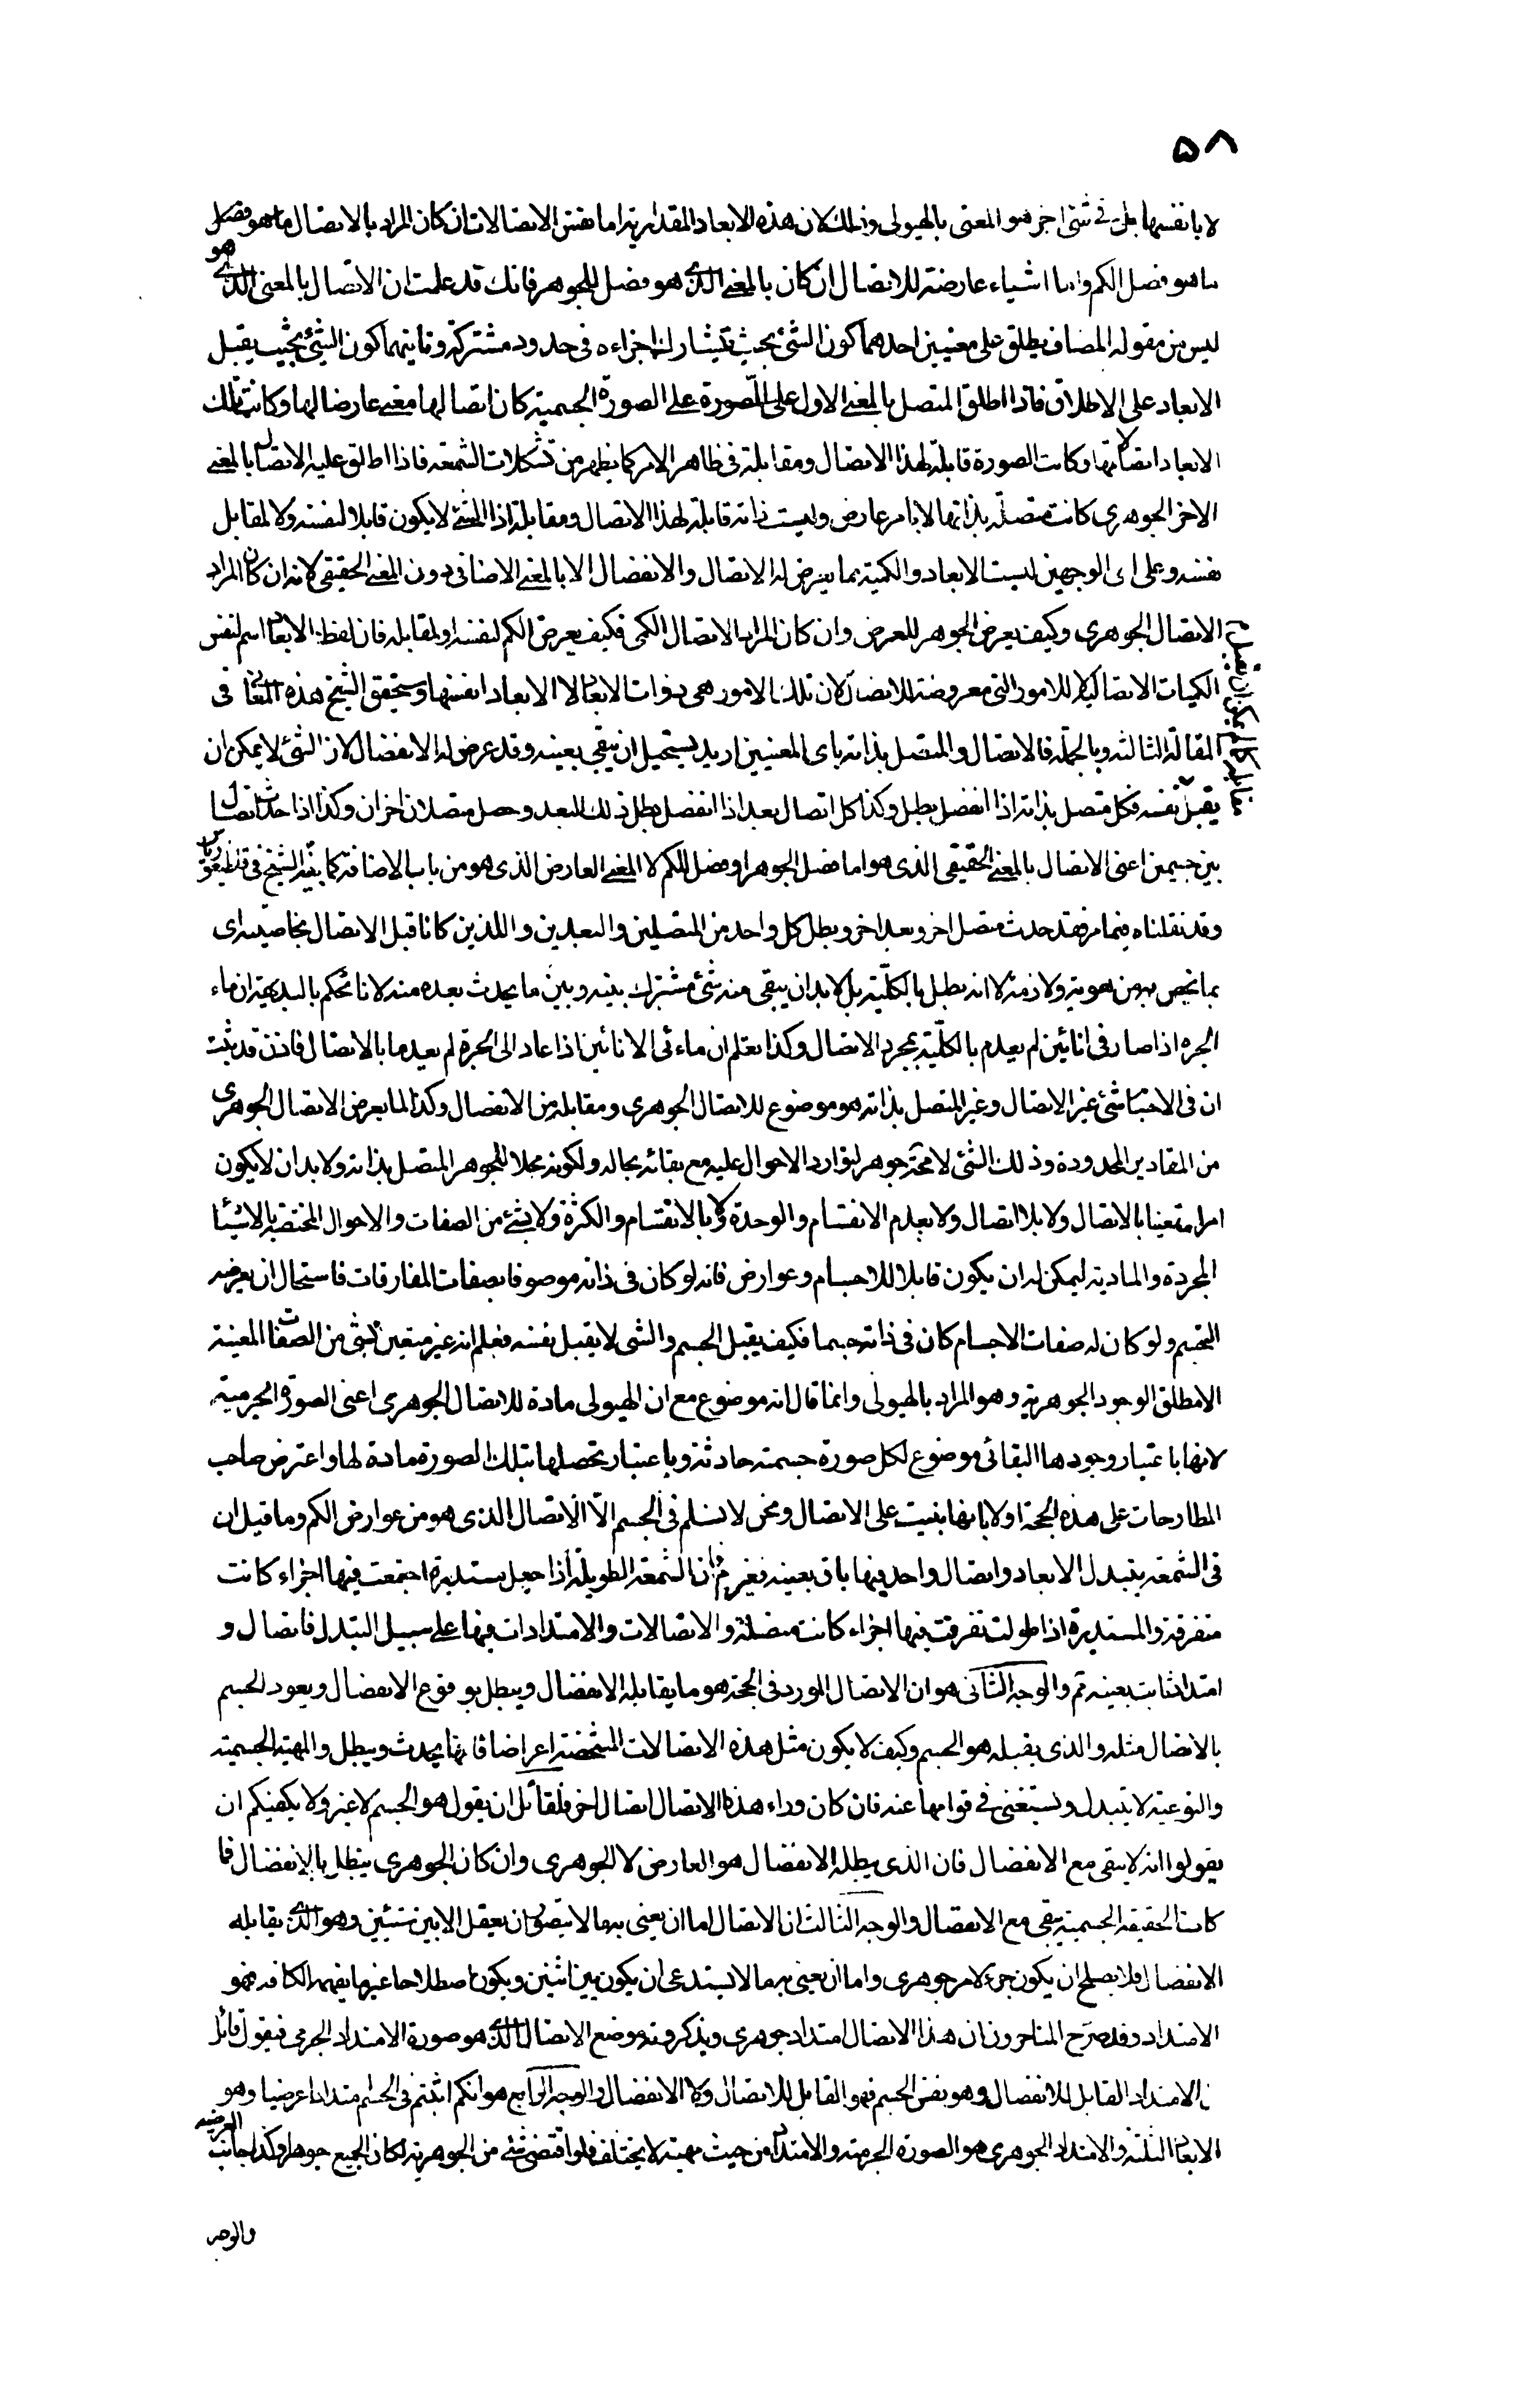 ٥٨
لا بانفسها بل فى شئ اخر هو المعنى بالهيولى وذلك لان هذه الابعاد المقدارية اما نفس الاتصالات ان كان المراد بالاتصال ما هو فصل
ما هو فصل الكم واما اشياء عارضة للاتصال ان كان بالمعنى الذى هو فصل للجوهر فانك قد علمت ان الاتصال بالمعنى الذى هو
ليس من مقولة المضاف يطلق على معنيين احدهما كون الشئ بحيث يتشارك اجزاءه فى حدود مشتركة وثانيهما كون الشئ بحيث يقبل
الابعاد على الاطلاق فاذا اطلق المتصل بالمعنى الاول على الصورة على الصورة الجسمية كان اتصالها معنى عارضا لها وكانت تلك
الابعاد اتصالاتها وكانت الصورة قابلة لهذا الاتصال ومقابلة فى ظاهر الامر كما يظهر من تشكلات الشمعة فاذا اطلق عليه الاتصال بالمعنى
الاخر الجوهرى كانت متصلة بذاتها لا بامر عارض وليست ذاته قابلة لهذا الاتصال ومقابله اذ الشئ لا يكون قابلا لنفسه ولا لمقابل
نفسه وعلى اى الوجهين ليست الابعاد والكمية مما يعرض له الاتصال والانفصال الا بالمعنى الاضافى دون المعنى الحقيقى لانه ان كان المراد
الاتصال الجوهرى وكيف يعرض الجوهر للعرض وان كان المراد الاتصال الكمى فكيف يعرض الكم لنفسه او لمقابله فان لفظ الابعاد اسم لنفس
الكميات الاتصالية لا للامور التى معروضة للاتصال لان تلك الامور هى ذوات الابعاد لا الابعاد انفسها وستحقق الشيخ هذه المعانى فى
المقالة الثالثة وبالجملة فالاتصال والمتصل بذاته باى المعنيين اريد يستحيل ان يبقى بعينه وقد عرض له الانفصال لان الشئ لا يمكن ان
يقبل نفسه فكل متصل بذاته اذا انفصل بطل وكذا كل اتصال بعد اذا انفصل بطل ذلك البعد وحصل متصلان اخران وكذا اذا حدث اتصال
مقابله كما لا يمكن ان يقبل
بين جسمين اعنى الاتصال بالمعنى الحقيقى الذى هو اما فصل الجوهر او فصل للكم لا المعنى العارض الذى هو من باب الاضافة كما بينه الشيخ فى قاطيغورياس
وقد نقلناه فيما مر فقد حدث متصل اخر وبعد اخر وبطل كل واحد من المتصلين والبعدين واللذين كانا قبل الاتصال بخاصيته اى
بما تخص به من هويته ولازمه لا انه بطل بالكلية بل لا بد ان يبقى منه شئ مشترك بينه وبين ما يحدث بعده منه لانا نحكم بالبديهة ان ماء
الجره اذا صار فى انائين لم يعدم بالكلية بمجرد الاتصال وكذا نعلم ان مائى الانائين اذا عاد الى الجرة لم يعدما بالاتصال فاذن قد ثبت
ان فى الاجسام شئ غير الاتصال وغير المتصل بذاته هو موضوع للاتصال الجوهرى ومقابله من الانفصال وكذا لما يعرض الاتصال الجوهرى
من المقادير المحدودة وذلك الشئ لا محة جوهر لتوارد الاحوال عليه مع بقائه بحاله ولكونه محلا للجوهر المتصل بذاته ولا بد ان لا يكون
امرا متعينا بالاتصال ولا بلا اتصال ولا بعدم الانقسام والوحدة ولا بالانقسام والكثرة ولا بشئ من الصفات والاحوال المختصة بالاشياء
المجردة والمادية ليمكن له ان يكون قابلا للاجسام وعوارض فانه لو كان فى ذاته موصوفا بصفات المفارقات فاستحال ان يعرضه
التجسم ولو كان له صفات الاجسام كان فى ذاته جسما فكيف يقبل الجسم والشى لا يقبل نفسه فعلم انه غير متعين بشى من الصفات المعينة
الا مطلق الوجود الجوهرية وهو المراد بالهيولى وانما قال انه موضوع مع ان الهيولى مادة للاتصال الجوهرى اعنى الصورة الجرمية
لانها باعتبار وجودها البقائى موضوع لكل صورة جسمته حادثة وباعتبار تحصلها بتلك الصورة مادة لها واعترض صاحب
المطارحات على هذه الحجة اولا بانها بنيت على الاتصال ونحن لا نسلم فى الجسم الا الاتصال الذى هو من عوارض الكم وما قيل ان
فى الشمعة يتبدل الابعاد واتصال واحد فيها باق بعينه فغير م فان الشمعة الطويلة اذا جعل مستديرة اجتمعت فيها اجزاء كانت
متفرقة والمستديرة اذا طولت تفرقت فيها اجزاء كانت متصلة والاتصالات والامتدادات فيها على سبيل التبدل فاتصال و
امتداد ثابت بعينه تم والوجه الثانى هو ان الاتصال المورد فى الحجة هو ما يقابله الانفصال ويبطل بوقوع الانفصال ويعود الجسم
بالاتصال مثله والذى يقبله هو الجسم وكيف لا يكون مثل هذه الاتصالات المشخصة اعراضا فانها يحدث ويبطل والمهية الجسمية
والنوعية لا يتبدل ويستغنى فى قوامها عنه فان كان وراء هذا الاتصال اتصال اخر فلقائل ان يقول هو الجسم لا غير ولا يكفيكم ان
يقولوا انه لا يبقى مع الانفصال فان الذى يبطله الانفصال هو العارض لا الجوهرى وان كان الجوهرى يبطل بالانفصال فما
كانت الحقيقة الجسمية يبقى مع الانفصال والوجه الثالث ان الاتصال اما ان يعنى به ما لا يتصور ان يعقل الا بين شيئين وهو الذى يقابله
الانفصال فلا يصلح ان يكون جزء لامر جوهرى واما ان يعنى به ما لا يستدعى ان يكون بين اثنين ويكون اصطلاحا غير ما يفهمه الكافه فهو
الامتداد وقد صرح المتاخرون ان هذا الاتصال امتداد جوهرى ويذكرونه موضع الاتصال الذى هو صورة الامتداد الجرمى فيقول قائل
ان الامتداد القابل للانفصال وهو نفس الجسم فهو القابل للاتصال ولا الانفصال والوجه الرابع هو انكم اثبتم فى الجسم امتدادا عرضيا وهو
الابعاد الثلثة والامتداد الجوهرى هو الصورة الجرمية والامتداد من حيث مهيته لا يختلف فلو اقتضى شئ من الجوهرية لكان الجميع جوهرا وكذا جانب العرضية
والوجه